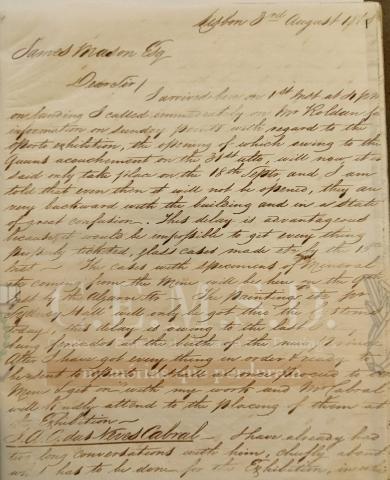 Lisbon 3rd August
James Mason Esq
Dear Sir/
I arrived here on 1st Inst at 4 pm
on landing I called immediately on Mr Roldan for
information on sundry points with regard to the
Oporto Exhibition, the opening of which owing to the
Queens acouchement on the 31st ulto, will now, it is
said only take place on the 18th Septr, and I am
told that even then it will not be opened, they are
very backward with the building and in a state
of great confusion. This delay is advantageous
because it would be impossible to get every thing
properly ticketed, glass cases made &c by the
The cases with specimens of Mineral
coming from the Mine will be here on the
by the Algarve Str The paintings &c from
Sydney Hall will only be got thro the Customs
today, this delay is owing to the last
being
After I have got every thing in order & ready
to be sent to Oporto I shall at once proceed to the
Mine & get on with my work and Mr Cabral
will kindly attend to the placing of them at
the Exhibition
J. A. C. das Neves Cabral - I have already had
two long conversations with him, chiefly about
what has to be done for the Exhibition,
C.E.M.S.D.